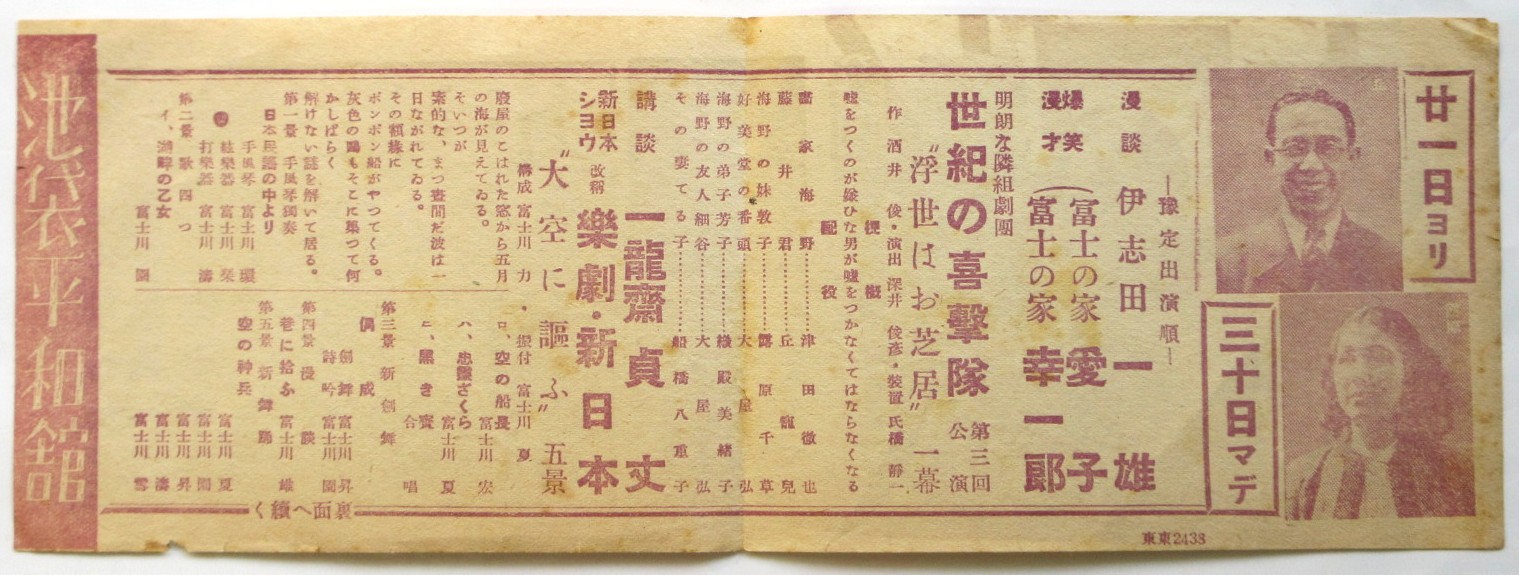 廿一日ヨリ
三十日マデ
―豫定出演順―
漫談 伊志田一雄
爆笑漫才(冨士の家愛子
(富士の家幸一郎
明朗な隣組劇團
世紀の喜擊隊 第三回公演
“浮世はお芝居” 一幕
作 酒井 俊・演出 深井 俊彦・裝置 氏橋 靜一
梗概
噓をつくのが嫌ひな男が噓をつかなくてはならなくなる
配役
野…………津田徹也
藤井君…………丘 兒
海野の妹敦子…………原千草
好美堂の番頭…………大屋弘
海野の弟子芳子…………織殿美緒子
海野の友人細谷…………大屋弘
その妻てる子…………船橋八重子
講談 一龍齋貞丈
新日本シヨウ 改稱 樂劇・新日本
“大空に謳ふ” 五景
構成 富士川 力・振付 富士川 夏
廢屋のこはれた窓から五月
の海が見えてゐる。
そいつが
素的な、まつ晝間だ波は一
日ながれてゐる。
その額緣に
ポンポン船がやつてくる。
灰色の鷗もそこに集つて何
かしばらく
解けない謎を解いて居る。
第一景 手風琴獨奏
日本民謠の中より
手風琴 富士川 環
絃樂器 富士川 榮
打樂器 富士川 濤
第二景 歌四つ
イ、湖畔の乙女
富士川 園
ロ、空の船長
富士川 宏
ハ、忠靈ざくら
富士川 夏
ニ、黑き寶
合唱
第三景 新劍舞
偶成
劍舞 富士川 昇
詩吟 富士川 園
第四景 漫談
巷に拾ふ 富士川 雄
第五景 新舞踊
空の神兵
富士川 夏
富士川 園
富士川 昇
富士川 濤
富士川 雪
裏面へ續く
池袋平和舘
東東2438